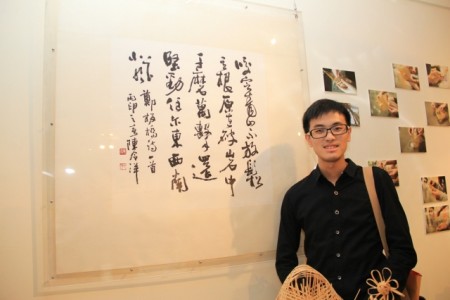 咬定青山不放鬆
立根原在破岩中
千磨萬擊還
堅勁任尔東西南
北風 鄭板橋詩一首
之夏陳洋